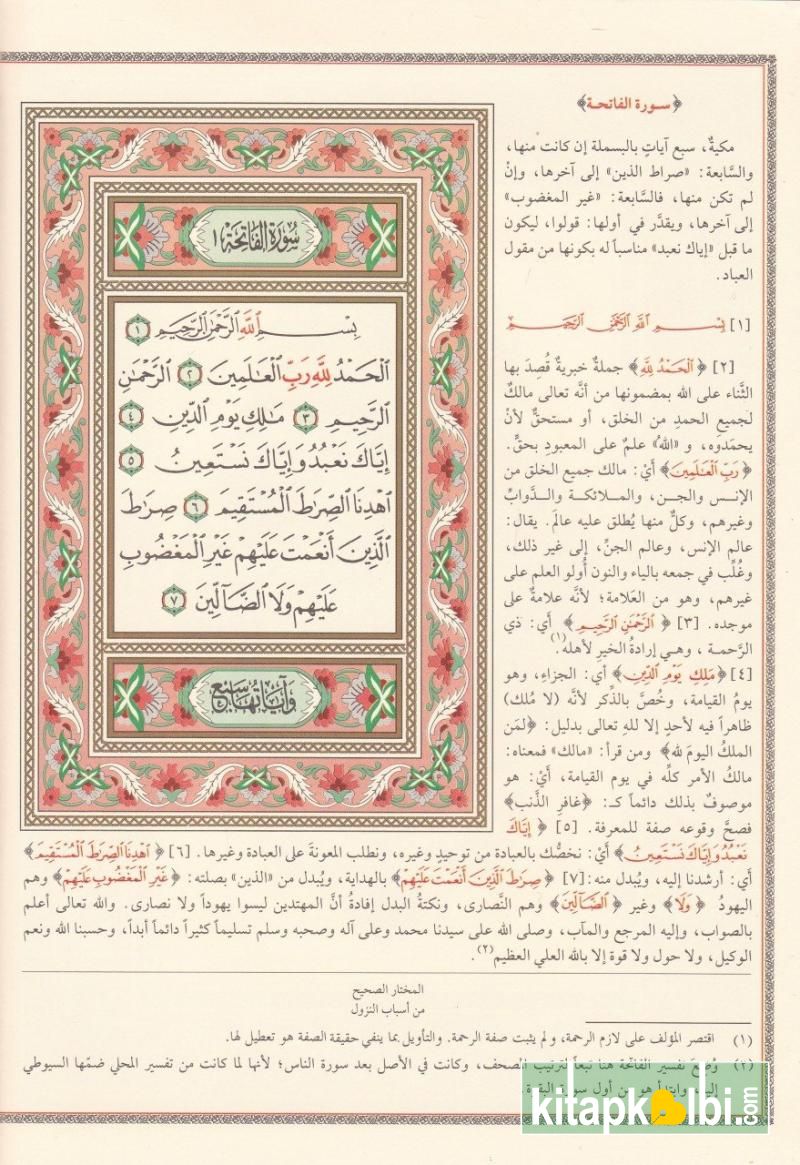 ﴿سورة الفاتحة﴾
مكيةٌ، سبع آياتٍ بالبسملة إن كانت منها،
والسَّابعة: «صراط الذين» إلى آخرها، وإنْ
لم تكن منها، فالسَّابعة: «غير المغضوب»
إلى آخرها، ويقدَّر في أولها: قولوا، ليكون
ما قبل «إياك نعبد» مناسباً له بكونها من مقول
العباد.
[١] بِسْمِ اللَّهِ الرَّحْمَٰنِ الرَّحِيمِ
[٢] ﴿الْحَمْدُ لِلَّهِ﴾ جملةٌ خبريةٌ قُصِدَ بها
الثَّناء على الله بمضمونها من أنَّه تعالى مالكٌ
لجميع الحمدِ من الخلق، أو مستحقٌّ لأنْ
يحمَدوه، و «اللهُ» علمٌ على المعبودِ بحقٍّ.
﴿رَبِّ الْعَالَمِينَ﴾ أيْ: مالك جميع الخلق من
الإنس والجن، والمـلائكـة والـدَّوابِّ
وغيرهم، وكلٌّ منها يُطلق عليه عالم. يقال:
عالم الإنس، وعالم الجنِّ، إلى غير ذلك،
وغُلِّب في جمعه بالياء والنون أُولو العلم على
غيرهم، وهو من العَلامة؛ لأنَّه علامةٌ على
موجده. [٣] ﴿الرَّحْمَٰنِ الرَّحِيمِ﴾ أي: ذي
الرَّحمـة ، وهـي إرادةُ الخيرِ لأهله(١).
[٤] ﴿مَلِكِ يَوْمِ الدِّينِ﴾ أي: الجزاءِ، وهو
يومُ القيامة، وخُصَّ بالذِّكر لأنَّه (لا مُلك)
ظاهراً فيه لأحدٍ إلا للهِ تعالى بدليل: ﴿لمَن
الملكُ اليومَ لله﴾ ومن قرأ: «مالك» فمعناه:
مالكُ الأمر كلِّه في يوم القيامة، أيْ: هو
موصوفٌ بذلك دائماً كـ: ﴿غافر الذَّنب﴾
فصحَّ وقوعه صفة للمعرفة. [٥] ﴿إِيَّاكَ
نَعْبُدُ وَإِيَّاكَ نَسْتَعِينُ﴾ أيْ: نخصُّك بالعبادة من توحيدٍ وغيره، ونطلب المعونةَ على العبادة وغيرها. [٦] ﴿اهْدِنَا الصِّرَاطَ الْمُسْتَقِيمَ﴾
أي: أرشدنا إليه، ويُبدل منه: [٧] ﴿صِرَاطَ الَّذِينَ أَنْعَمْتَ عَلَيْهِمْ﴾ بالهداية، ويُبدل من «الذين» بصلته: ﴿غَيْرِ الْمَغْضُوبِ عَلَيْهِمْ﴾ وهم
اليهودُ ﴿وَلَا﴾ وغير ﴿الضَّالِّينَ﴾ وهم النَّصارى، ونكتةُ البدل إفادةُ أنَّ المهتدين ليسوا يهوداً ولا نصارى. والله تعالى أعلم
بالصواب، وإليه المرجع والمآب، وصلى الله على سيدنا محمد وعلى آله وصحبه وسلم تسليماً كثيراً دائماً أبداً، وحسبنا الله ونعم
الوكيل، ولا حول ولا قوة إلا بالله العلي العظيم(٢).
سُورَةُ الْفَاتِحَةِ ١
بِسْمِ اللَّهِ الرَّحْمَٰنِ الرَّحِيمِ ١
الْحَمْدُ لِلَّهِ رَبِّ الْعَالَمِينَ ٢ الرَّحْمَٰنِ
الرَّحِيمِ ٣ مَالِكِ يَوْمِ الدِّينِ ٤
إِيَّاكَ نَعْبُدُ وَإِيَّاكَ نَسْتَعِينُ ٥
اهْدِنَا الصِّرَاطَ الْمُسْتَقِيمَ ٦ صِرَاطَ
الَّذِينَ أَنْعَمْتَ عَلَيْهِمْ غَيْرِ الْمَغْضُوبِ
عَلَيْهِمْ وَلَا الضَّالِّينَ ٧
وَآيَاتُهَا سَبْعٌ
المختار الصحيح
من أسباب النزول
(١) اقتصر المؤلف على لازم الرحمة، ولم يثبت صفة الرحمة. والتأويل بما ينفي حقيقة الصفة هو تعطيل لها.
(٢) وُضعَ تفسير الفاتحة هنا تبعاً لترتيب المصحف، وكانت في الأصل بعد سورة الناس؛ لأنها لما كانت من تفسير المحلي ضمَّها السيوطي
إليه، وابتدأ هو من أول سورة البقرة.
kitapkalbi.com